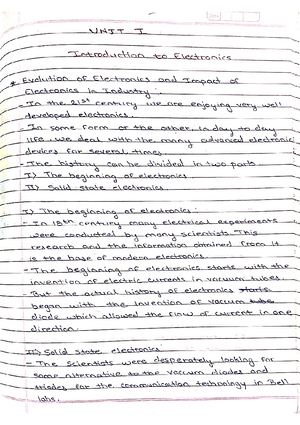 UNIT I
Introduction to Electronics
* Evolution of Electronics and Impact of
Electronics in Industry :
- In the 21st century we are enjoying very well
developed electronics.
- In some form or the other, in day to day
life, we deal with the many advanced electronic
devices for several times.
- The history can be divided in two parts
I) The beginning of electronics
II) Solid state electronics.
I) The beginning of electronics :
- In 18th century many electrical experiments
are conducted by many scientists. This
research and the information obtained from it
is the base of modern electronics
- The beginning of electronics starts with the
invention of electric currents in vaccum tubes.
- But the actual history of electronics starts
began with the invection of vaccum tube
diode which allowed the flow of current in one
direction.
II) Solid state electronics
- The Scientists were desperately looking for
some alternative to the vaccum diodes and
triodes for the communication technology in Bell
labs.